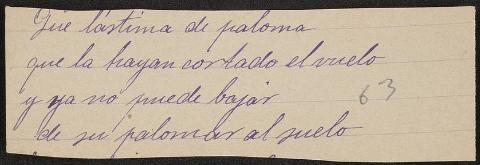 Que lástima de paloma
que la hayan cortado el vuelo
y ya no puede bajar
63
de su palomar al suelo